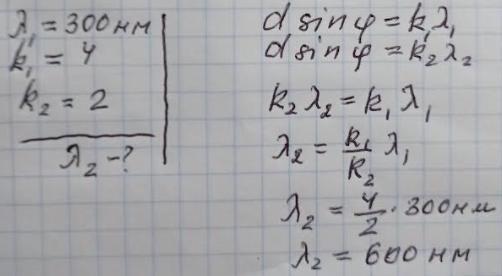 λ₁ = 300 нм
k₁ = 4
k₂ = 2
λ₂ - ?
d sin φ = k₁λ₁
d sin φ = k₂λ₂
k₂λ₂ = k₁λ₁
λ₂ = k₁/k₂ λ₁
λ₂ = 4/2 · 300 нм
λ₂ = 600 нм